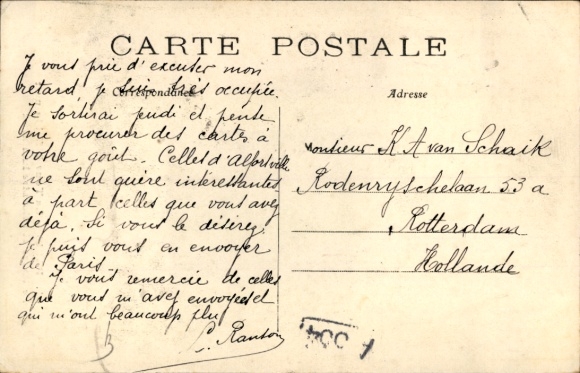 CARTE POSTALE
Correspondance
Adresse
Je vous prie d'excuser mon
retard je suis très occupée.
Je sortirai jeudi et pense
me procurer des cartes à
votre goût. Celles d'Alfortville
ne sont guère intéressantes
à part celles que vous avez
déjà. Si vous le désirez
je puis vous en envoyer
de Paris.
Je vous remercie de celles
que vous m'avez envoyées et
qui m'ont beaucoup plu
Monsieur K A van Schaik
Rodenryschelaan 53 a
Rotterdam
Hollande